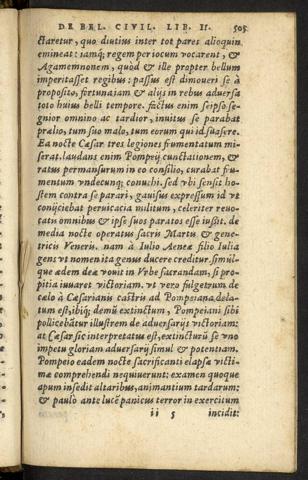 DE BEL. CIVIL. LIB. II. 505
ctaretur, quo diutius inter tot pares alioquin
emineat: iamq́; regem periocum vocarent, &
Agamemnonem, quòd & ille propter bellum
imperitasset regibus: passus est dimoueri se à
proposito, fortunaiam & alijs in rebus aduersa
toto huius belli tempore. factus enim seipso se-
gnior omnino ac tardior, inuitus se parabat
prælio, tum suo malo, tum eorum qui id suasere.
Ea nocte Cæsar tres legiones frumentatum mi-
serat. laudans enim Pompeij cunctationem, &
ratus permansurum in eo consilio, curabat fru-
mentum vndecunq; conuehi. sed vbi sensit ho-
stem contra se parari, gauisus expressum id vt
conijciebat peruicacia militum, celeriter reuo-
catis omnibus & ipse suos paratos esse iussit. de
media nocte operatus sacris Marti & gene-
tricis Veneris. nam à Iulio Aeneæ filio Iulia
gens vt nomen ita genus ducere creditur. simúl-
que ædem deæ vouit in Vrbe sacrandam, si pro-
pitia iuuaret victoriam. vt vero fulgetrum de
cælo à Cæsarianis castris ad Pompeiana dela-
tum est, ibiq́; demũ extinctum, Pompeiani sibi
pollicebãtur illustrem de aduersarijs victoriam:
at Cæsar sic interpretatus est, extincturũ se vno
impetu gloriam aduersarij simul & potentiam.
Pompeio eadem nocte sacrificanti elapsæ victi-
mæ comprehendi nequiuerunt: examen quoque
apum insedit altaribus, animantium tardarum:
& paulo ante lucẽ panicus terror in exercitum
ii 5 incidit: